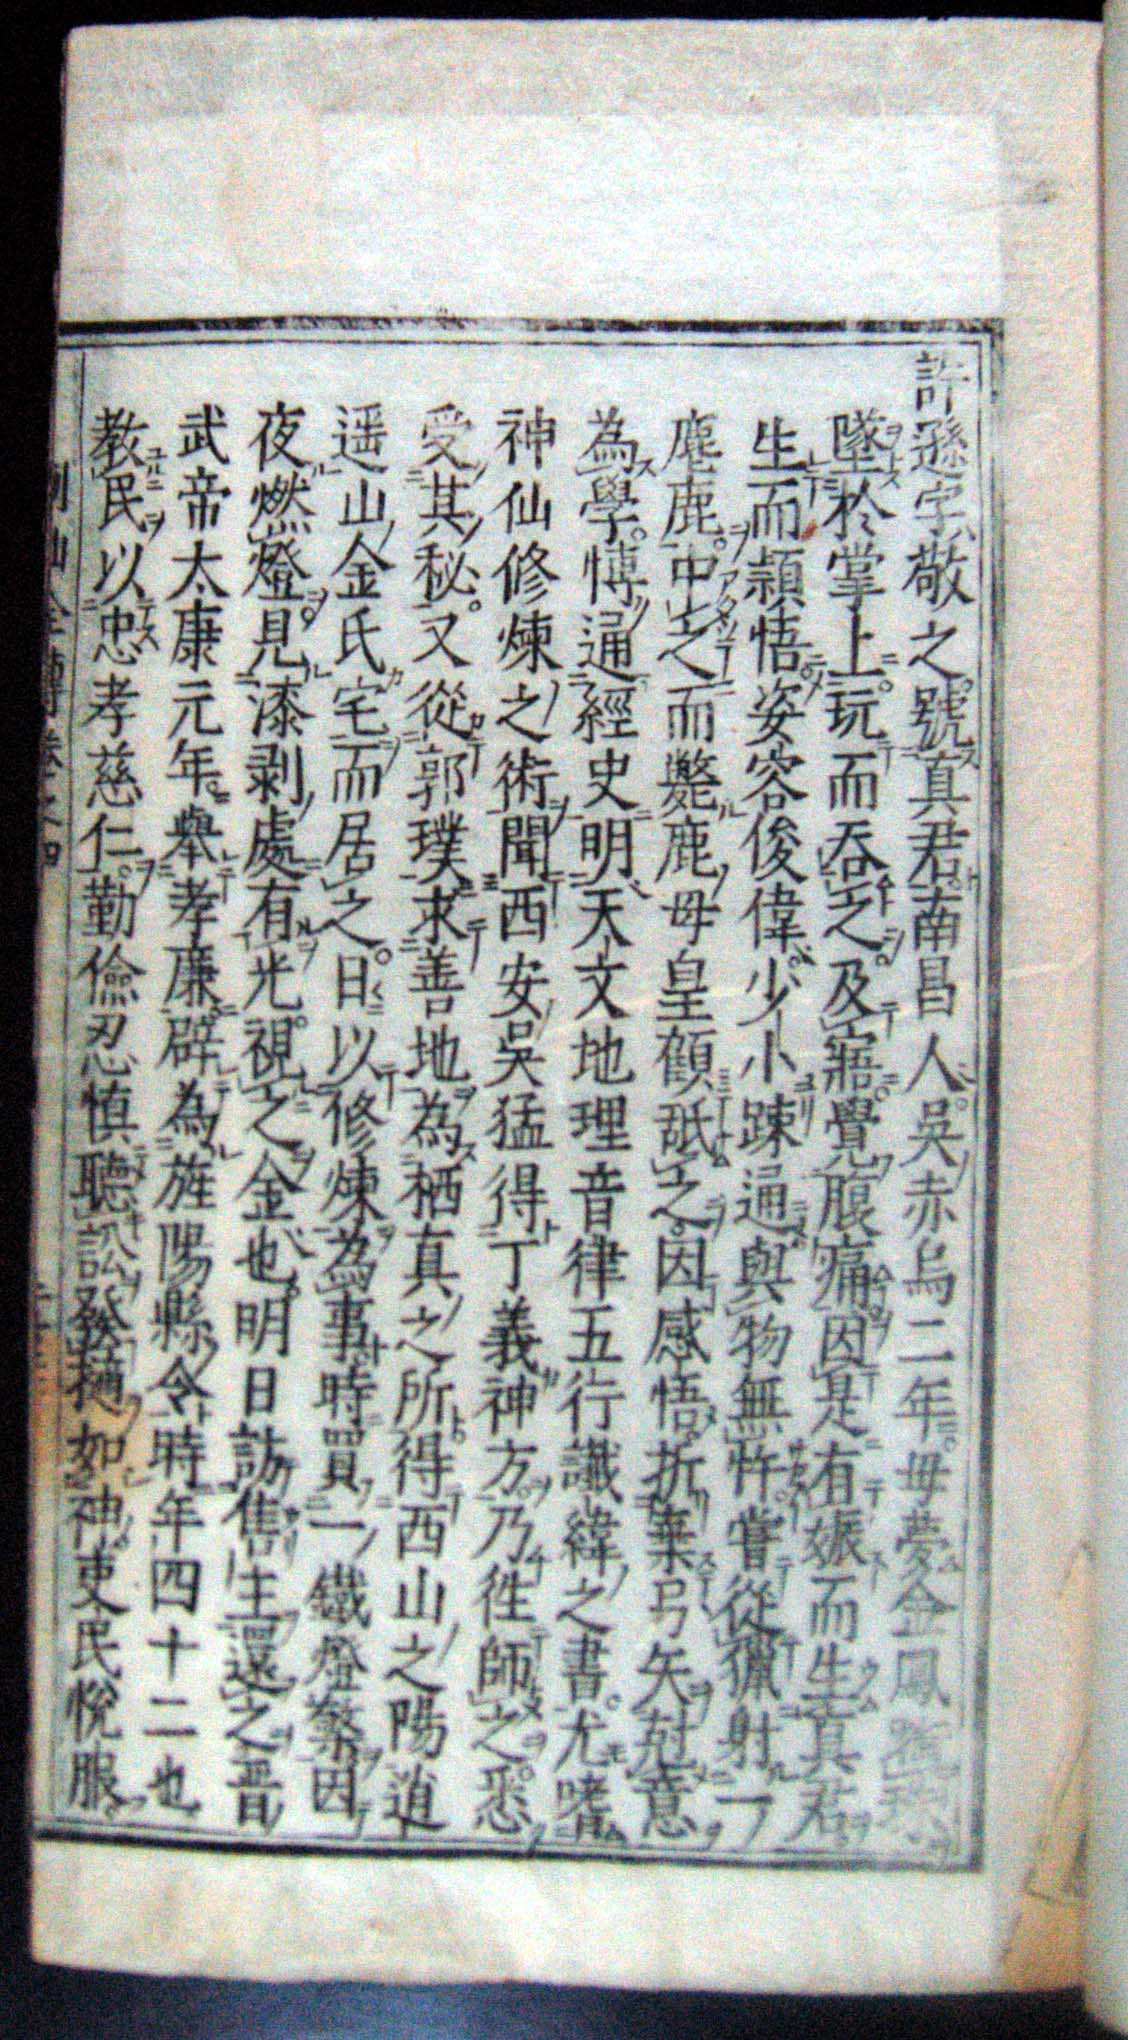 許遜字敬之。號真君。南昌人。吳赤烏二年。母夢金鳳銜珠
墜於掌上。玩而吞之。及寤覺腹痛。因是有娠而生真君
生而頴悟。姿容俊偉。少小踈通與物無忤。嘗從獵射一
麈鹿。中之而斃。鹿母皇顧舐之。因感悟。折棄弓矢。尅意
為學。愽通經史。明天文地理音律五行讖緯之書。尤嗜
神仙修煉之術。聞西安吳猛得丁義神方。乃徃師之。悉
受其秘。又從郭璞求善地。為栖真之所。得西山之陽逍
遥山金氏宅而居之。日以修煉為事。時買一鐵燈檠因
夜燃燈。見漆剥處有光。視之金也。明日訪售主還之晋
武帝太康元年。舉孝廉。辟為旌陽縣令。時年四十二也
教民以忠孝慈仁。勤儉忍慎。聽訟發擿如神。吏民悅服